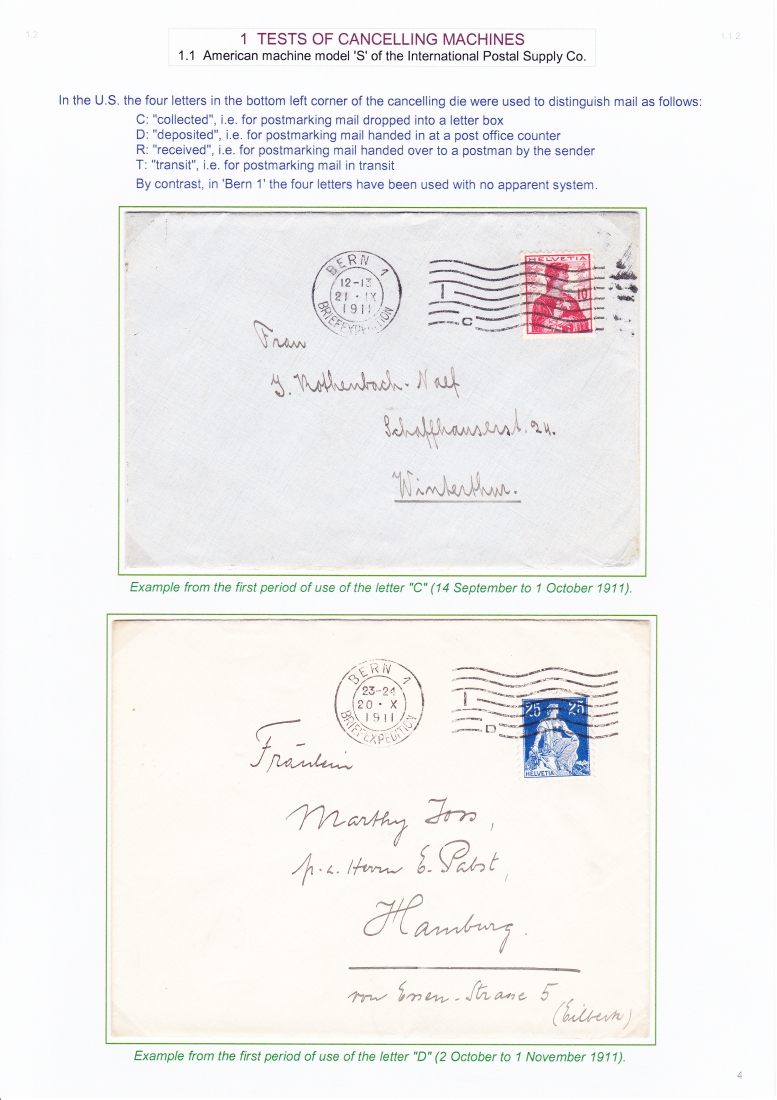 1.2
1 TESTS OF CANCELLING MACHINES
1.1 American machine model 'S' of the International Postal Supply Co.
1.1.2
In the U.S. the four letters in the bottom left corner of the cancelling die were used to distinguish mail as follows:
C: "collected", i.e. for postmarking mail dropped into a letter box
D: "deposited", i.e. for postmarking mail handed in at a post office counter
R: "received", i.e. for postmarking mail handed over to a postman by the sender
T: "transit", i.e. for postmarking mail in transit
By contrast, in 'Bern 1' the four letters have been used with no apparent system.
BERN 1
12-13
21 · IX
1911
BRIEFEXPEDITION
1
C
HELVETIA
10
Frau
J. Rothenbach-Naef
Schaffhauserst. 24.
Winterthur.
Example from the first period of use of the letter "C" (14 September to 1 October 1911).
BERN 1
23-24
20 · X
1911
BRIEFEXPEDITION
1
D
25 25
HELVETIA
Fräulein
Marthy Joss,
p.a. Herrn E. Pabst,
Hamburg.
von Essen-Strasse 5
(Eilbek)
Example from the first period of use of the letter "D" (2 October to 1 November 1911).
4